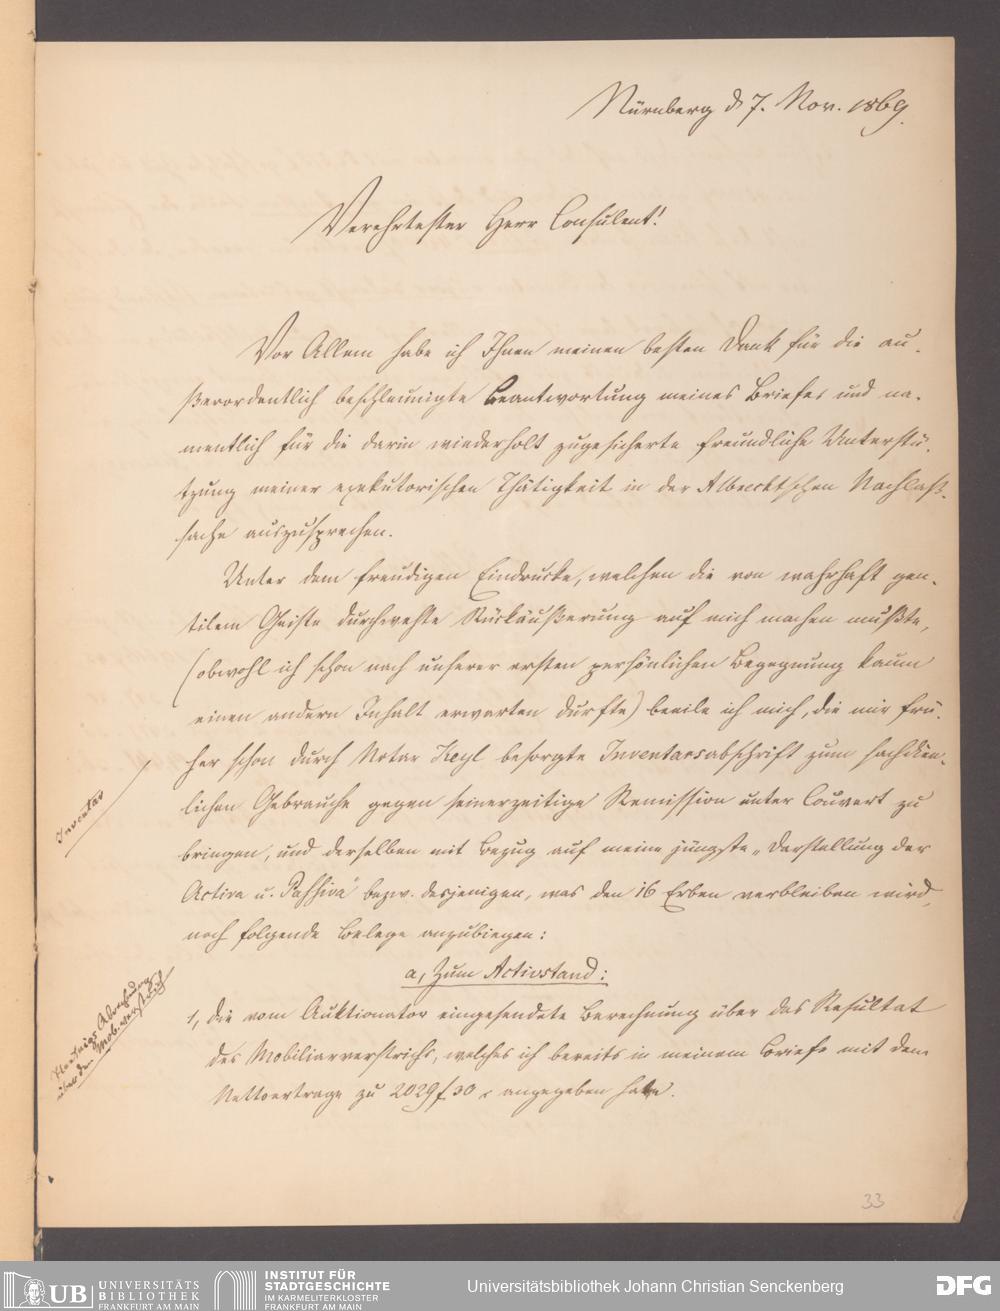 Nürnberg d 7. Nov. 1869.
Verehrtester Herr Consulent!
Vor Allem habe ich Ihnen meinen besten Dank für die au-
ßerordentlich beschleunigte Beantwortung meines Briefes und na-
mentlich für die darin wiederholt zugesicherte freundliche Unterstü-
tzung meiner exekutorischen Thätigkeit in der Albrecht'schen Nachlaß-
sache auszusprechen.
Unter dem freudigen Eindrucke, welchen die von wahrhaft gen-
tilem Geiste durchwehte Rückäußerung auf mich machen mußte,
(obwohl ich schon nach unserer ersten persönlichen Begegnung kaum
einen andern Inhalt erwarten durfte) beeile ich mich, die mir frü-
her schon durch Notar Keyl besorgte Inventarsabschrift zum sachdien-
lichen Gebrauche gegen seinerzeitige Remission unter Couvert zu
bringen, und derselben mit Bezug auf meine jüngste „Darstellung der
Activa u. Passiva" bezw. desjenigen, was den 16 Erben verbleiben wird,
noch folgende Belege anzubiegen:
a, Zum Activstand:
1, die vom Auktionator eingesendete Berechnung über das Resultat
des Mobiliarverstrichs, welches ich bereits in meinem Briefe mit dem
Nettoertrage zu 2029 f 30 x angegeben habe.
Inventar
über den Mob. verstrich
33
UB UNIVERSITÄTS
BIBLIOTHEK
FRANKFURT AM MAIN
INSTITUT FÜR
STADTGESCHICHTE
IM KARMELITERKLOSTER
FRANKFURT AM MAIN
Universitätsbibliothek Johann Christian Senckenberg
DFG